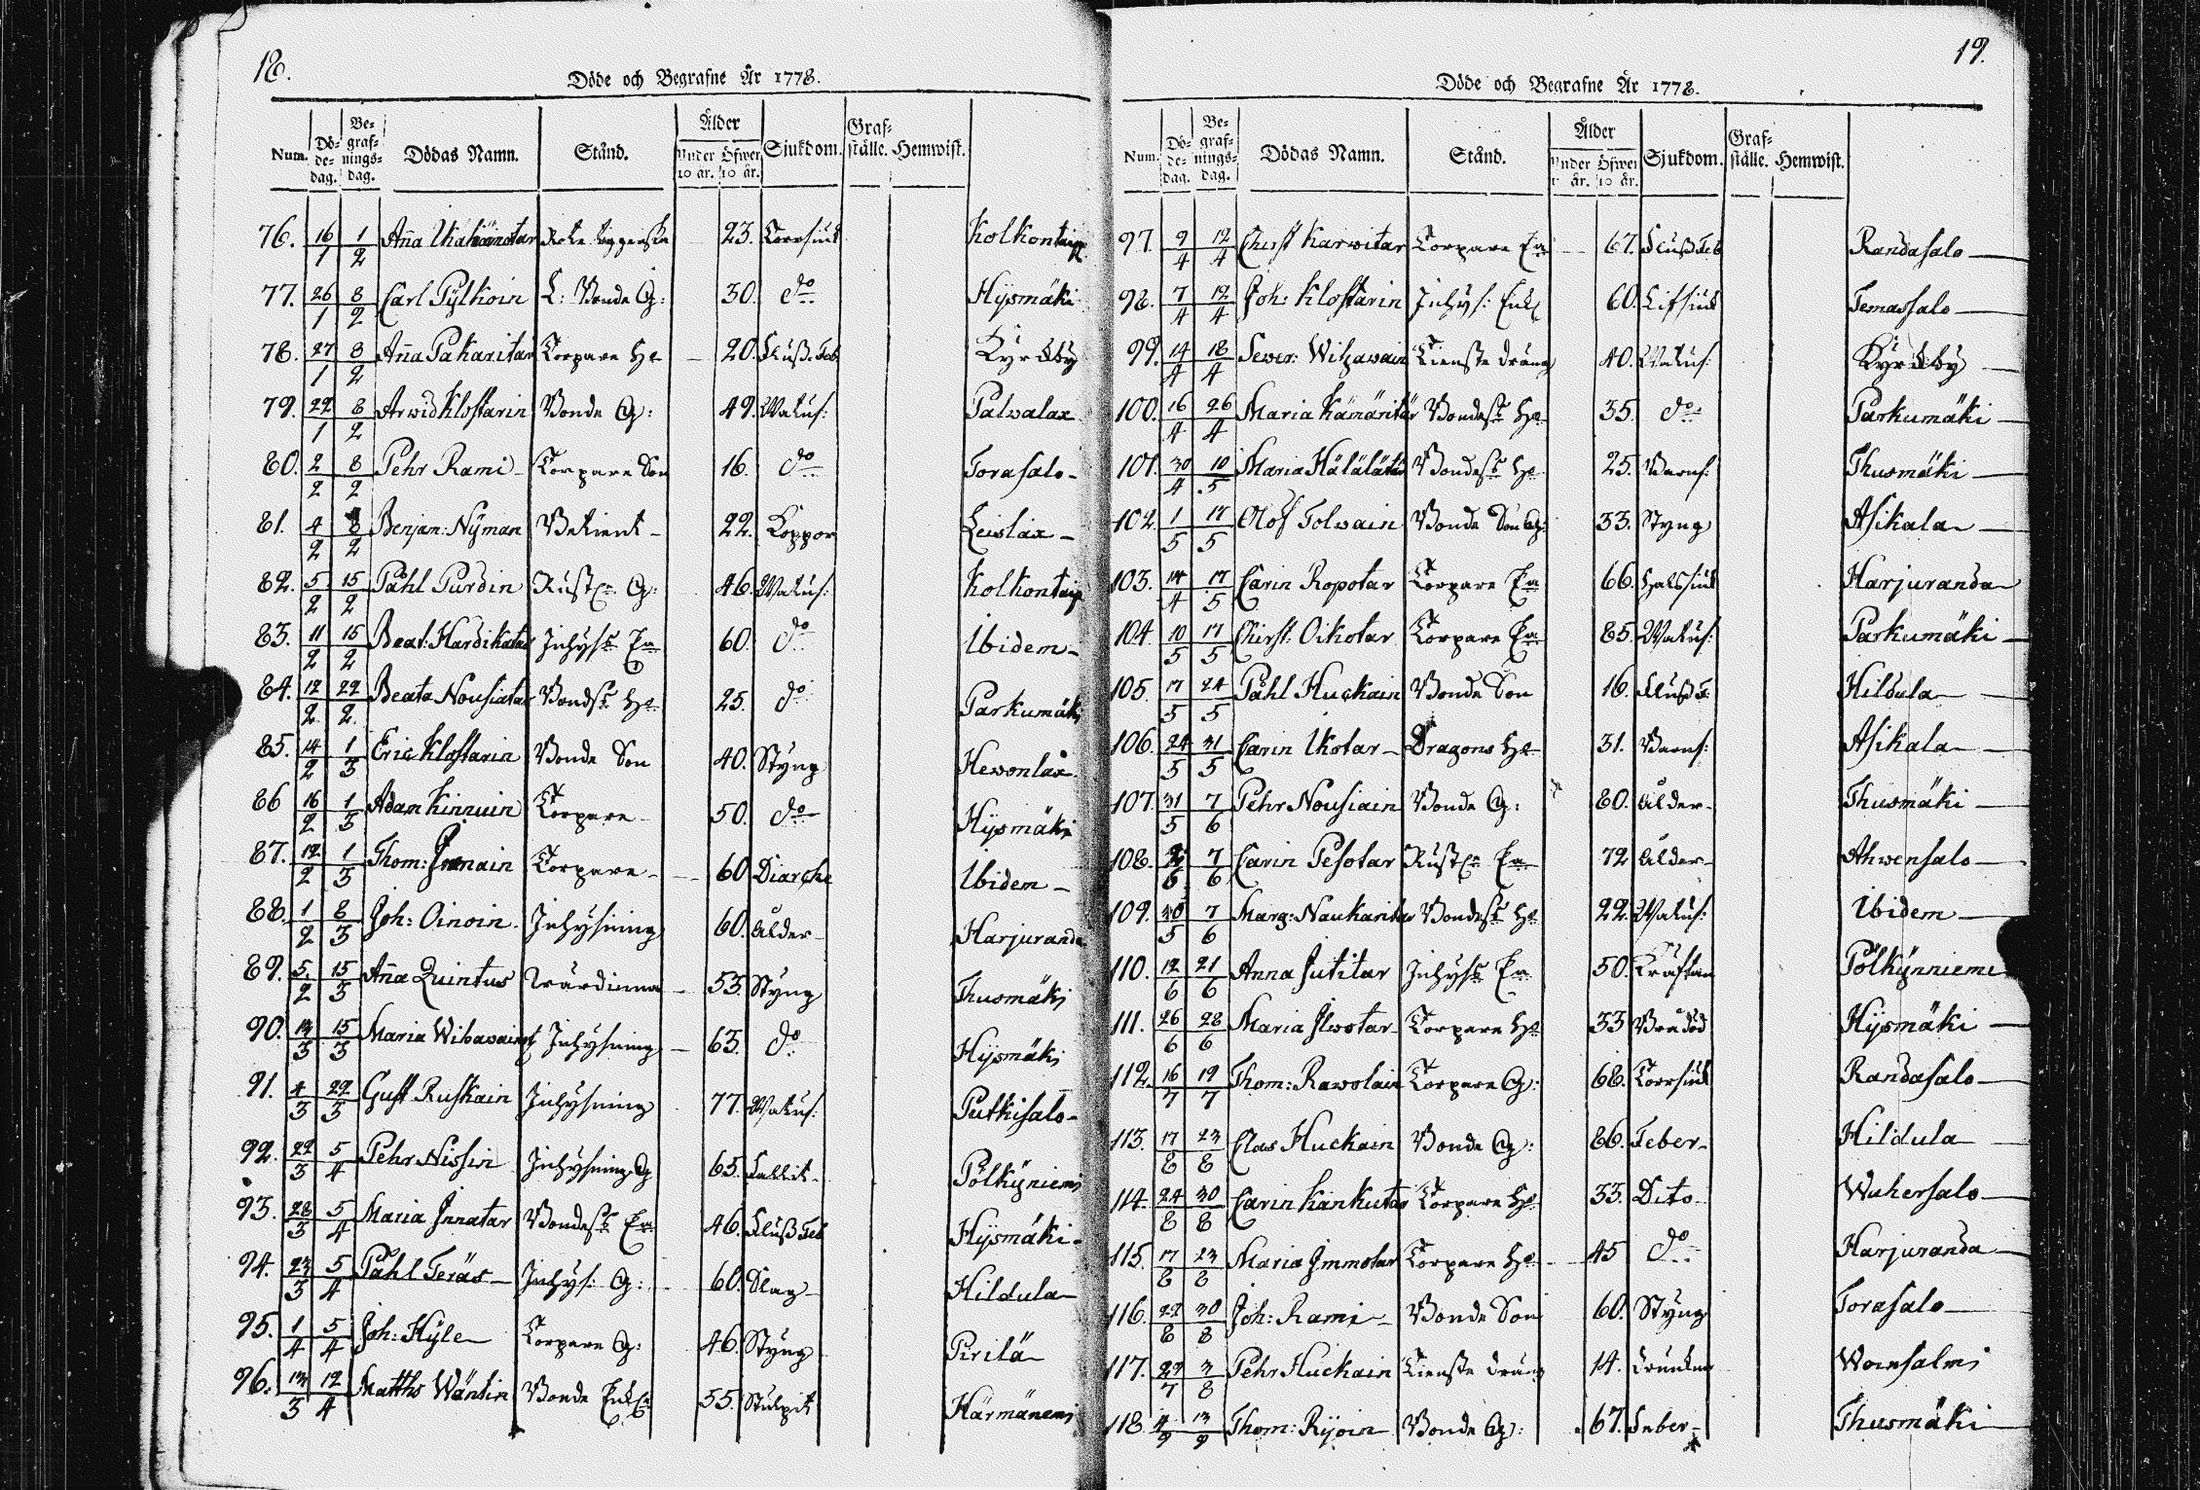 18.
Döde och Begrafne År 1778.
Num. Dö-de-dag. Be-graf-nings-dag. Dödas Namn. Stånd. Ålder Under 10 år. Öfwer 10 år. Sjukdom. Graf-ställe. Hemwist.
76. 16/1 1/2 Aña 23. Torrsiuk
77. 26/1 8/2 Carl Pylkoin L: Bonde G: 30. do Hysmäki
78. 27/1 8/2 Aña Pakaritar Torpare H Fluß Feb Kyrckby
79. 29/1 8/2 Arwid Klostarin Bonde G: 49. Watus: Palvalax
80. 2/2 8/2 Pehr Rami Torpare Son 16. do Torasalo
81. 4/2 8/2 Benjam: Nyman Betient 22. Koppor Leislax
82. 5/2 15/2 Påhl Purdin G: 46. Watus:
83. 11/2 15/2 Beat: Hardikatar Inhyss 60. do Ibidem
84. 12/2 22/2 Beata Nousiatar 25. do Parkumäki
85. 14/2 1/3 Eric Klostarin Bonde Son 40. Styng Hewonlax
86 16/2 1/3 Adam Kinnuin Torpare 50. do Hysmäki
87. 12/2 1/3 Thom: Torpare 60 Diarche Ibidem
88. 1/2 8/3 Joh: Oinoin Inhysning 60. ålder Harjuranda
89. 5/2 15/3 Aña Quintus Wärdinna 53. Styng Thusmäki
90. 13/3 15/3 Maria Inhysning 63. do Hysmäki
91. 4/3 29/3 Gust Ruskain Inhysning 77. Watus: Putkisalo
92. 22/3 5/4 Pehr Nissin Inhysning G 65. Pölkyniemi
93. 28/3 5/4 Maria Innatar 46. Fluß Feb Hysmäki
94. 23/3 5/4 Påhl Teräs Inhys: G: 60. Slag Hildula
95. 1/4 5/4 Joh: Hyle Torpare G: 46. Styng Pirilä
96. 13/3 12/4 Matths Wäntin Bonde 55. Härmänemi
19.
Döde och Begrafne År 1778.
Num. Dö-de-dag. Be-graf-nings-dag. Dödas Namn. Stånd. Ålder Under 10 år. Öfwer 10 år. Sjukdom. Graf-ställe. Hemwist.
97. 9/4 12/4 Christ Karwitar Torpare 67. Fluß Feb Randasalo
98. 7/4 12/4 Joh: Klostarin Inhys: 60. Temassalo
99. 14/4 18/4 Sewer: Tienste dräng 40. Watus: Kyrckby
100. 16/4 26/4 Maria Kämäritär 35. do Parkumäki
101. 30/4 10/5 Maria 25. Barns: Thusmäki
102. 1/5 17/5 Olof Tolwain Bonde Son G: 33. Styng Asikala
103. 14/4 17/5 Carin Ropotar Torpare 66. Halssiuk Harjuranda
104 10/5 17/5 Christ: Oikotar Torpare 85. Watus: Parkumäki
105. 17/5 24/5 Påhl Huckain Bonde Son 16. Hildula
106. 24/5 31/5 Carin Ikotar Dragons H 31. Barns: Asikala
107. 31/5 7/6 Pehr Nousiain Bonde G: 80. ålder Thusmäki
108. 7/6 Carin Pesotar 72 ålder Ahwensalo
109. 30/5 7/6 Marg: Naukaritar 22. Watus: Ibidem
110. 12/6 21/6 Anna Jutitar Inhyss 50. Kräftan Pölkynnieme
111. 26/6 28/6 Maria Ilwotar Torpare 33 Hysmäki
112. 16/7 19/7 Thom: Rawolain Torpare G: 68. Torrsiuk Randasalo
113. 17/8 23/8 Clas Huckain Bonde G: 86. Feber Hildula
114. 24/8 30/8 Carin Kankutar Torpare H 33. Dito Wuhersalo
115. 17/8 23/8 Maria Immotar Torpare H 45 do Harjuranda
116. 22/8 30/8 Joh: Rami Bonde Son 60. Styng Torasalo
117. 29/7 3/8 Pehr Huckain Tienste dräng 14. Drunkn
118. 4/9 13/9 Thom: Ryoin Bonde G: 67. Feber Thusmäki